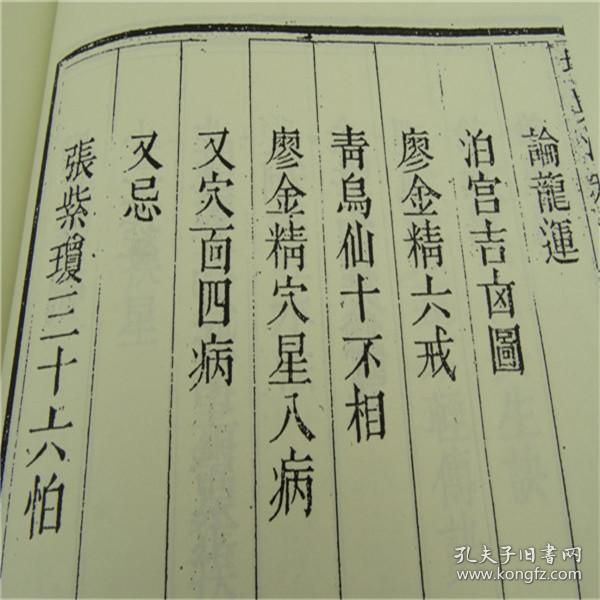 論龍運
泊宮吉凶圖
廖金精六戒
靑烏仙十不相
廖金精穴星八病
又穴面四病
又忌
張紫瓊三十六怕
孔夫子旧书网
www.kongfz.com